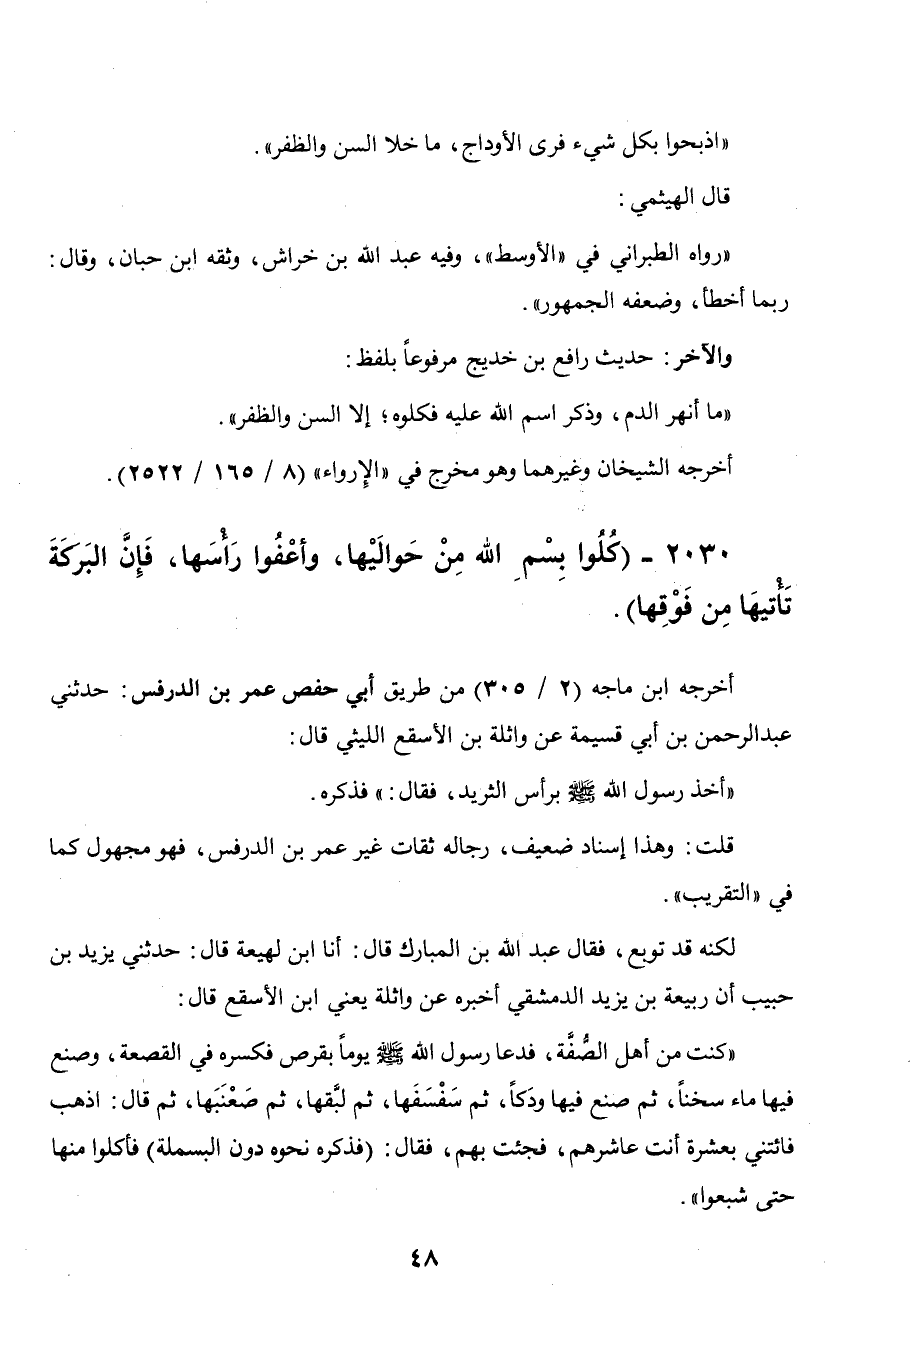 «اذبحوا بكل شيء فرى الأوداج، ما خلا السن والظفر».
قال الهيثمي:
«رواه الطبراني في «الأوسط»، وفيه عبد الله بن خراش، وثقه ابن حبان، وقال:
ربما أخطأ، وضعفه الجمهور».
والآخر: حديث رافع بن خديج مرفوعاً بلفظ:
«ما أنهر الدم، وذكر اسم الله عليه فكلوه؛ إلا السن والظفر».
أخرجه الشيخان وغيرهما وهو مخرج في «الإرواء» (٨ / ١٦٥ / ٢٥٢٢).
٢٠٣٠ - (كُلُوا بِسْمِ الله مِنْ حَوالَيْها، وأعْفُوا رَأْسَها، فَإِنَّ البَرَكَةَ
تَأْتيهَا مِن فَوْقِها).
أخرجه ابن ماجه (٢ / ٣٠٥) من طريق أبي حفص عمر بن الدرفس: حدثني
عبدالرحمن بن أبي قسيمة عن واثلة بن الأسقع الليثي قال:
«أخذ رسول الله ﷺ برأس الثريد، فقال:» فذكره.
قلت: وهذا إسناد ضعيف، رجاله ثقات غير عمر بن الدرفس، فهو مجهول كما
في «التقريب».
لكنه قد توبع، فقال عبد الله بن المبارك قال: أنا ابن لهيعة قال: حدثني يزيد بن
حبيب أن ربيعة بن يزيد الدمشقي أخبره عن واثلة يعني ابن الأسقع قال:
«كنت من أهل الصُّفَّة، فدعا رسول الله ﷺ يوماً بقرص فكسره في القصعة، وصنع
فيها ماء سخناً، ثم صنع فيها ودَكاً، ثم سَفْسَفَها، ثم لبَّقها، ثم صَعْنَبَها، ثم قال: اذهب
فائتني بعشرة أنت عاشرهم، فجئت بهم، فقال: (فذكره نحوه دون البسملة) فأكلوا منها
حتى شبعوا».
٤٨